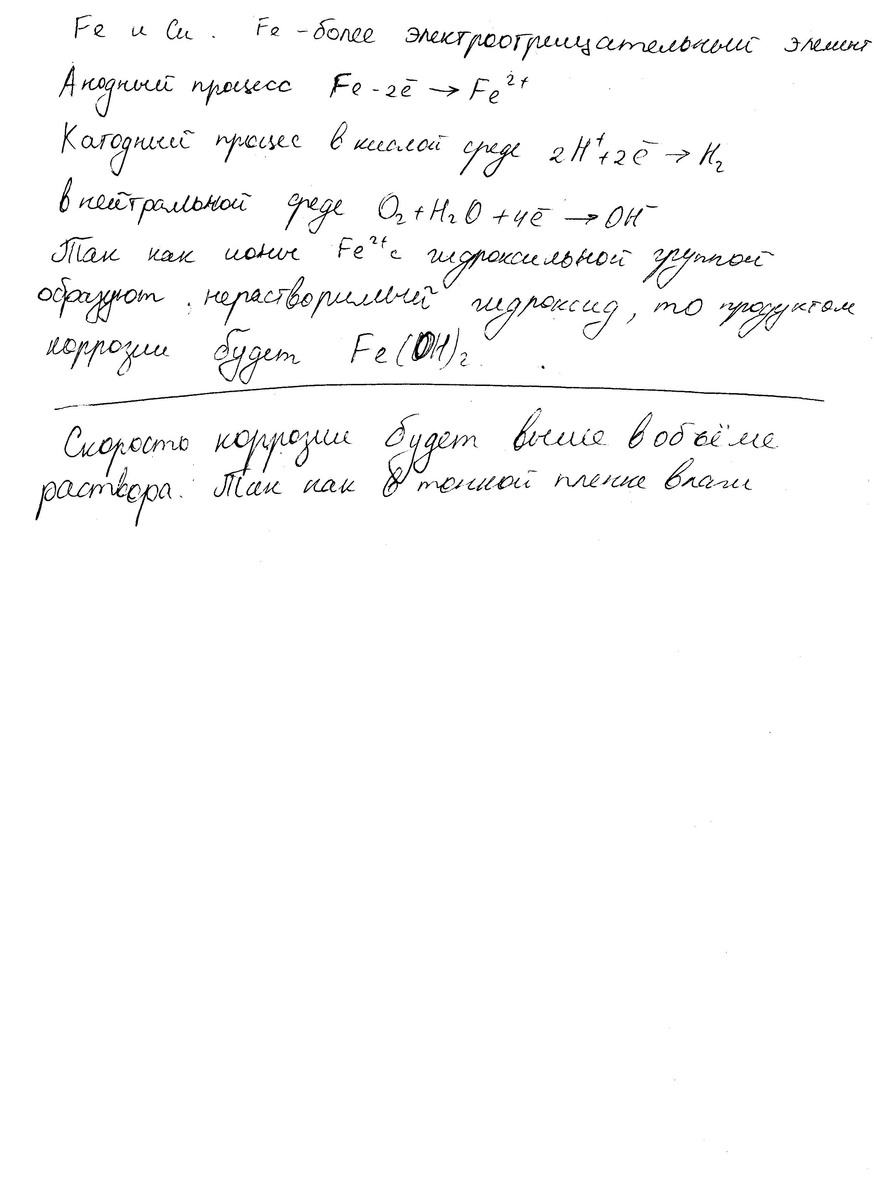 Fe и Cu. Fe - более электроотрицательный элемент
Анодный процесс Fe - 2ē → Fe²⁺
Катодный процес в кислой среде 2H⁺+2ē → H₂
в нейтральной среде O₂ + H₂O + 4ē → OH⁻
Так как ионы Fe²⁺ с гидроксильной группой
образуют нерастворимый гидроксид, то продуктом
коррозии будет Fe(OH)₂.
Скорость коррозии будет выше в объёме
раствора. Так как в тонкой пленке влаги